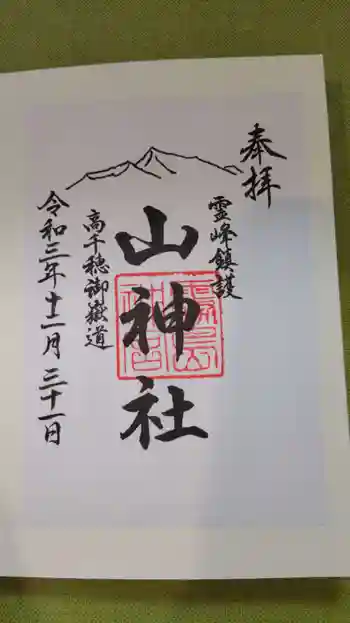 奉拝
霊峰鎮護
山神社
霧島神宮
高千穂御嶽道
令和三年十一月 三十一日